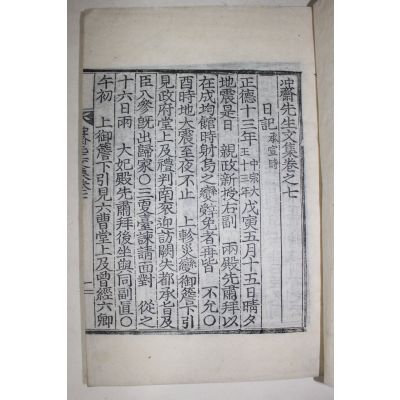 冲齋先生文集卷之七
日記 承宣時
正德十三年 中宗大王十三年 戊寅五月十五日晴夕
地震是日 親政新授右副 兩殿先肅拜以
在成均館時射鳥之變辭免者再皆 不允○
酉時地大震至夜不止 上軫災變御簷下引
見政府堂上及禮判南袞迎訪闕失都承旨及
臣入參旣出歸家○三更臺諫請面對 從之
十六日雨 大妃殿先肅拜後坐與同副直○
午初 上御簷下引見六曹堂上及曾經六卿